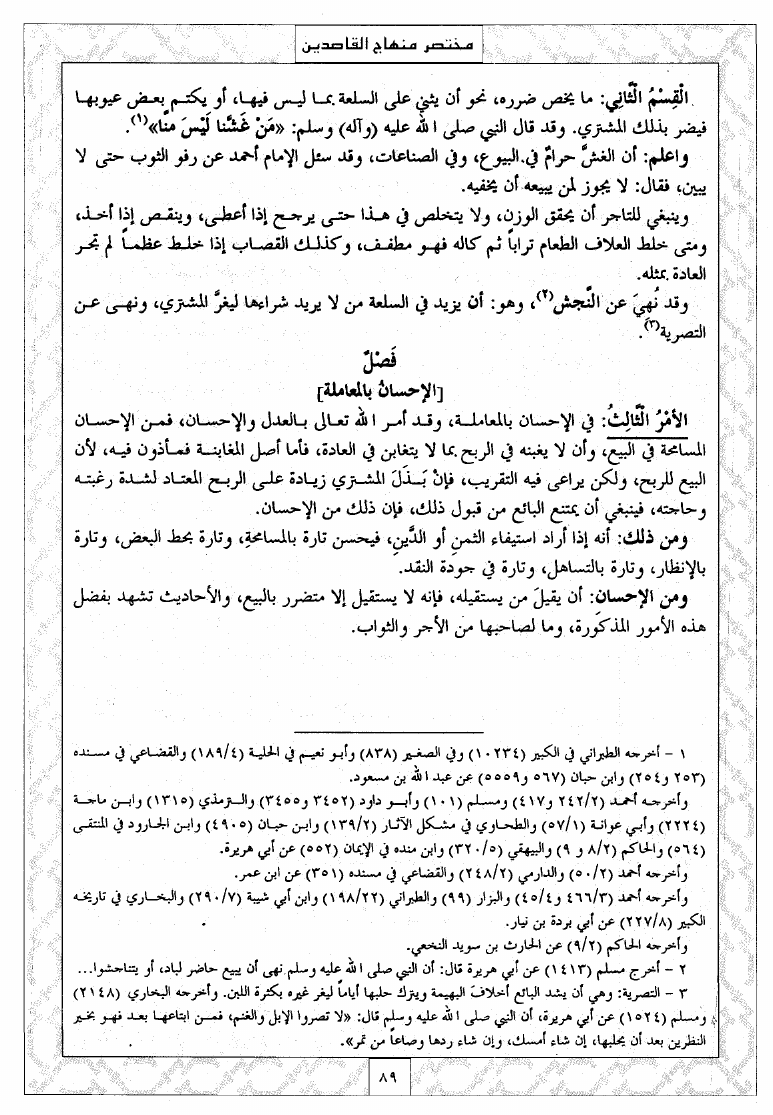 مختصر منهاج القاصدين
الْقِسْمُ الثَّانِي: ما يخص ضرره، نحو أن يثني على السلعة بما ليس فيها، أو يكتم بعض عيوبها
فيضر بذلك المشتري. وقد قال النبي صلى الله عليه (وآله) وسلم: «مَنْ غَشَّنا لَيْسَ منَّا»(١).
واعلم: أن الغشَّ حرامٌ في البيوع، وفي الصناعات، وقد سئل الإمام أحمد عن رفو الثوب حتى لا
يبين، فقال: لا يجوز لمن يبيعه أن يخفيه.
وينبغي للتاجر أن يحقق الوزن، ولا يتخلص في هذا حتى يرجح إذا أعطى، وينقص إذا أخذ،
ومتى خلط العلاف الطعام تراباً ثم كاله فهو مطفف، وكذلك القصاب إذا خلط عظماً لم تجر
العادة بمثله.
وقد نُهيَ عن النَّجش(٢)، وهو: أن يزيد في السلعة من لا يريد شراءها ليغرَّ المشتري، ونهى عن
التصرية(٣).
فَصْلٌ
[الإحسانُ بالمعاملة]
الأمْرُ الثَّالِثُ: في الإحسان بالمعاملة، وقد أمر الله تعالى بالعدل والإحسان، فمن الإحسان
المسامحة في البيع، وأن لا يغبنه في الربح بما لا يتغابن في العادة، فأما أصل المغابنة فمأذون فيه، لأن
البيع للربح، ولكن يراعى فيه التقريب، فإنْ بَذَلَ المشتري زيادة على الربح المعتاد لشدة رغبته
وحاجته، فينبغي أن يمتنع البائع من قبول ذلك، فإن ذلك من الإحسان.
ومن ذلك: أنه إذا أراد استيفاء الثمنِ أو الدَّينِ، فيحسن تارة بالمسامحةِ، وتارة بحط البعض، وتارة
بالإنظار، وتارة بالتساهل، وتارة في جودة النقد.
ومن الإحسان: أن يقيلَ من يستقيله، فإنه لا يستقيل إلا متضرر بالبيع، والأحاديث تشهد بفضل
هذه الأمور المذكورة، وما لصاحبها من الأجر والثواب.
١ – أخرجه الطبراني في الكبير (١٠٢٣٤) وفي الصغير (٨٣٨) وأبو نعيم في الحلية (١٨٩/٤) والقضاعي في مسنده
(٢٥٣ و٢٥٤) وابن حبان (٥٦٧ و٥٥٥٩) عن عبد الله بن مسعود.
وأخرجه أحمد (٢٤٢/٢ و٤١٧) ومسلم (١٠١) وأبو داود (٣٤٥٢ و٣٤٥٥) والترمذي (١٣١٥) وابن ماجة
(٢٢٢٤) وأبي عوانة (٥٧/١) والطحاوي في مشكل الآثار (١٣٩/٢) وابن حبان (٤٩٠٥) وابن الجارود في المنتقى
(٥٦٤) والحاكم (٨/٢ و ٩) والبيهقي (٣٢٠/٥) وابن منده في الإيمان (٥٥٢) عن أبي هريرة.
وأخرجه أحمد (٥٠/٢) والدارمي (٢٤٨/٢) والقضاعي في مسنده (٣٥١) عن ابن عمر.
وأخرجه أحمد (٤٦٦/٣ و٤٥/٤) والبزار (٩٩) والطبراني (١٩٨/٢٢) وابن أبي شيبة (٢٩٠/٧) والبخاري في تاريخه
الكبير (٢٢٧/٨) عن أبي بردة بن نيار.
وأخرجه الحاكم (٩/٢) عن الحارث بن سويد النخعي.
٢ – أخرج مسلم (١٤١٣) عن أبي هريرة قال: أن النبي صلى الله عليه وسلم نهى أن يبيع حاضر لباد، أو يتناجشوا...
٣ – التصرية: وهي أن يشد البائع أخلافَ البهيمة ويترك حلبها أياماً ليغر غيره بكثرة اللبن. وأخرجه البخاري (٢١٤٨)
ومسلم (١٥٢٤) عن أبي هريرة، أن النبي صلى الله عليه وسلم قال: «لا تصروا الإبل والغنم، فمن ابتاعها بعد فهو بخير
النظرين بعد أن يحلبها، إن شاء أمسك، وإن شاء ردها وصاعاً من تمر».
٨٩